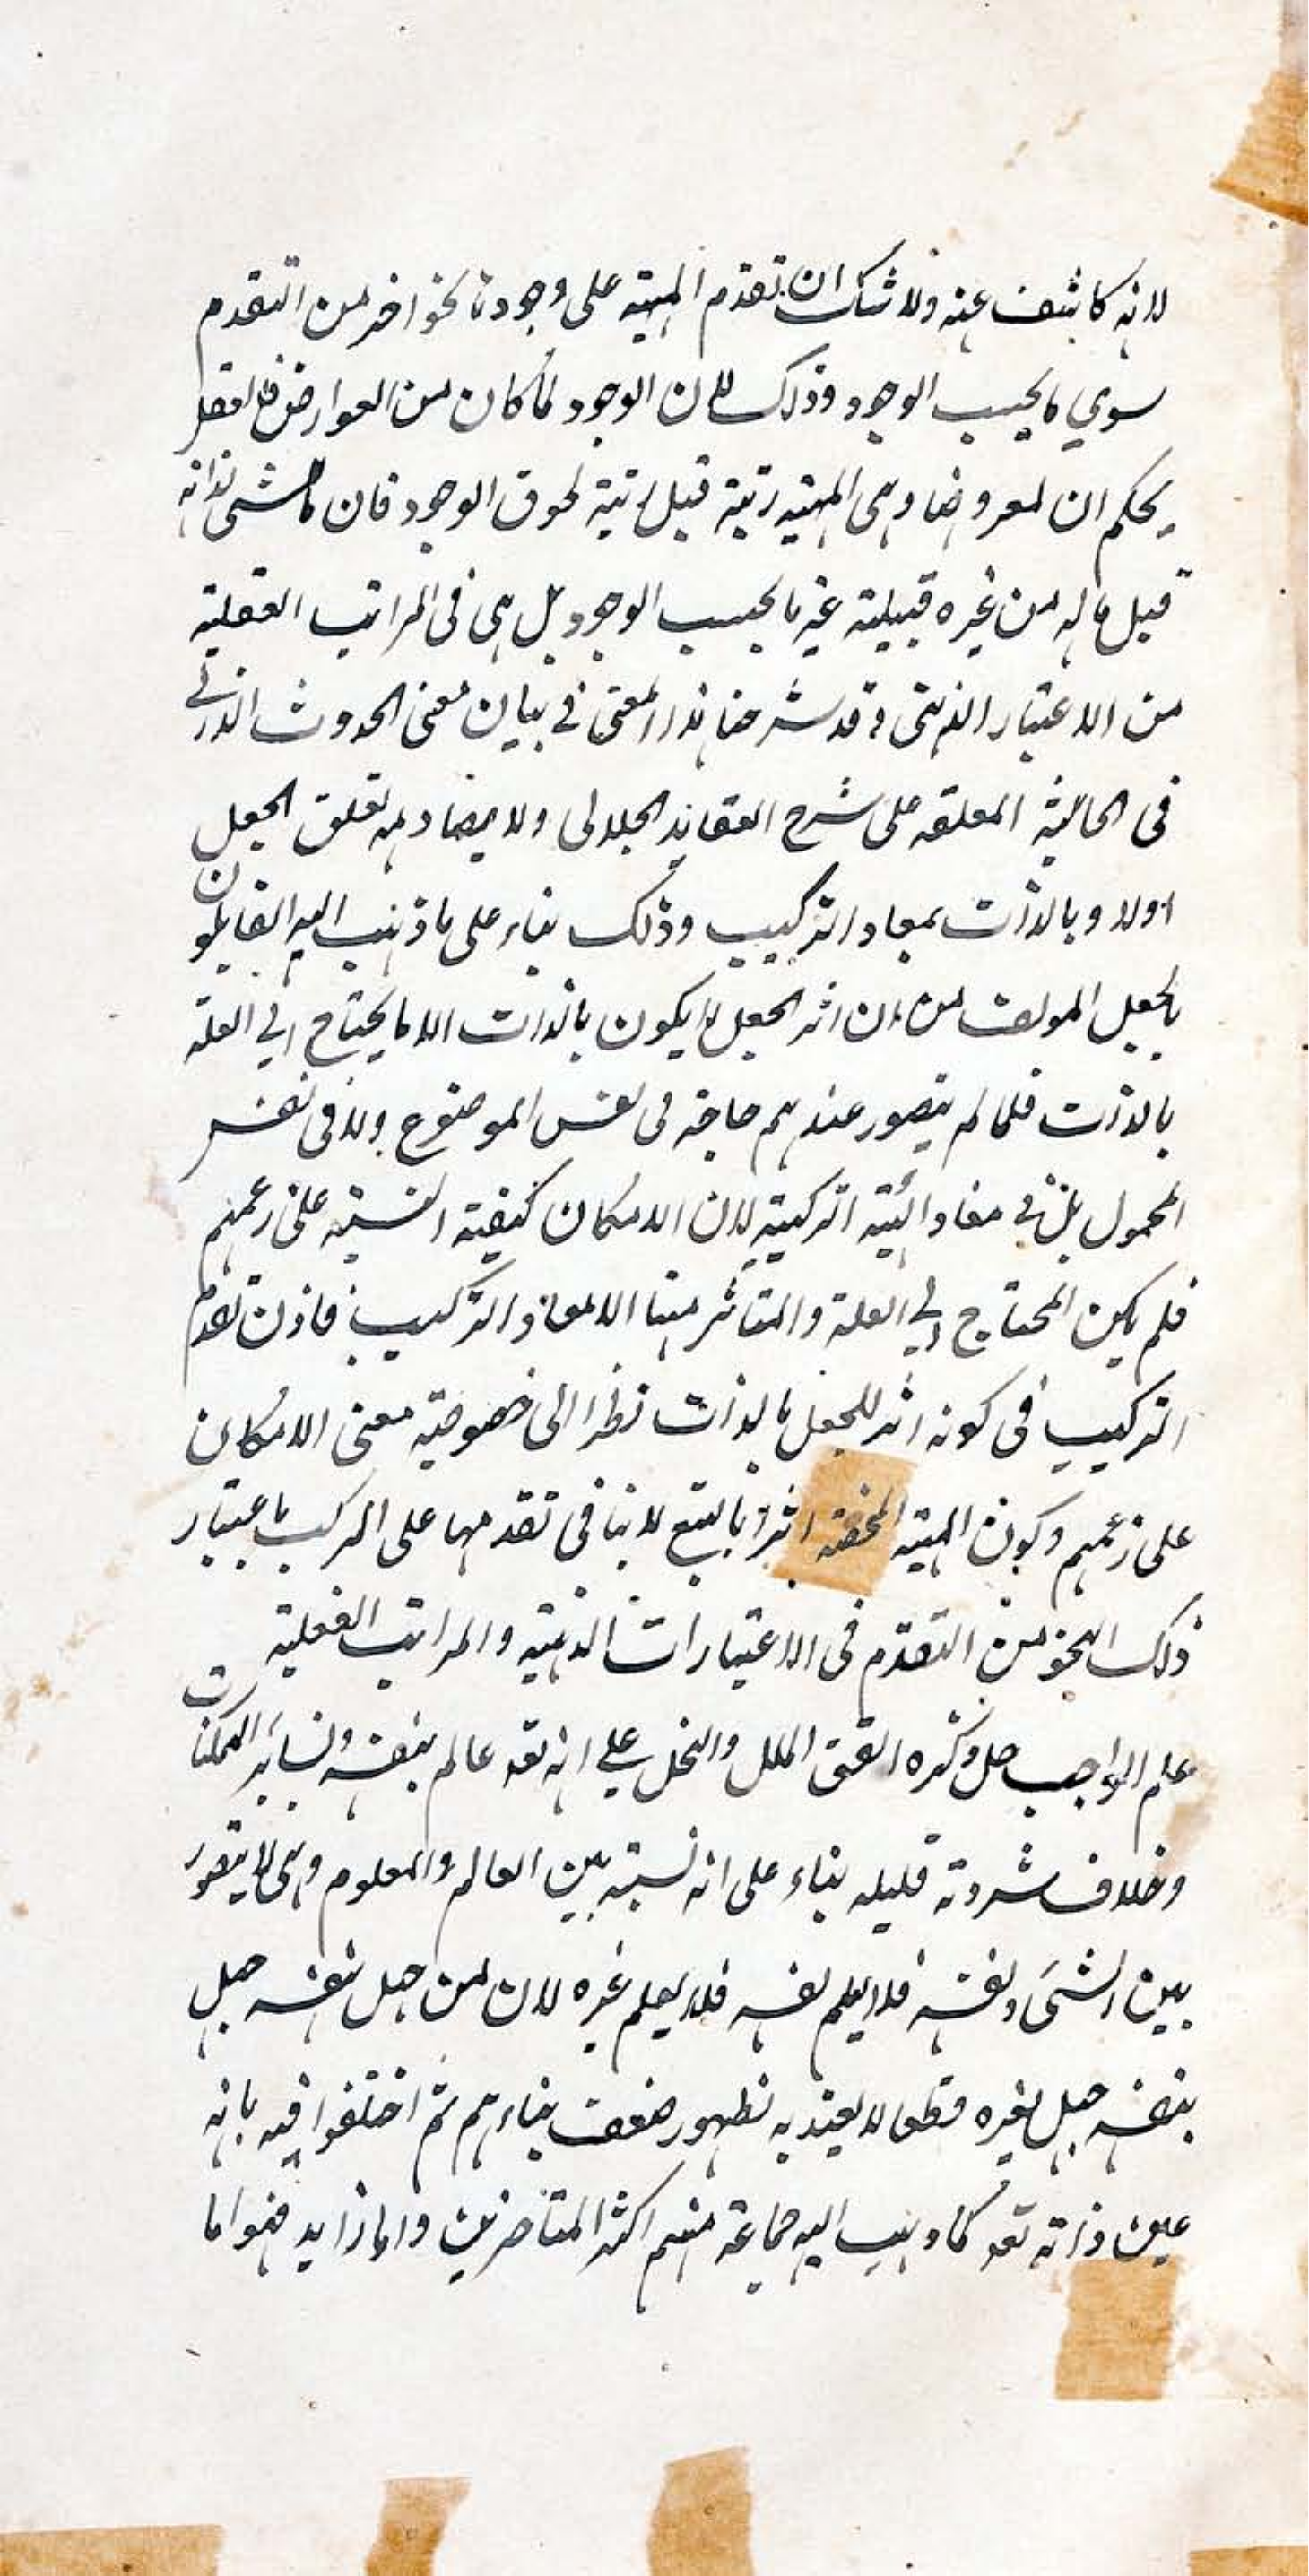 لانه كاشف عنه ولا شك ان تقدم المهية على وجودها نحو اخر من التقدم
سوي ما بحسب الوجود وذلك لان الوجود لما كان من العوارض فالعقل
يحكم ان لمعروضها وهى المهية رتبة قبل رتبة لحوق الوجود فان ما للشى لذاته
قبل ما له من غيره قبيلية غير ما بحسب الوجود بل هى فى المراتب العقلية
من الاعتبار الذهنى وقد شرحنا هذا المعنى فى بيان معنى الحدوث الذاتي
فى الحاشية المعلقه على شرح العقايد الجلالى ولا يصادمه تعلق الجعل
اولا وبالذات بمفاد التركيب وذلك بناء على ما ذهب اليه القايلون
بالجعل المولف من ان اثر الجعل لا يكون بالذات الا ما يحتاج الي العلة
بالذات فلما لم يتصور عندهم حاجة فى نفس الموضوع ولا فى نفس
المحمول بل في مفاد الهيئة التركيبية لان الامكان كيفية النسبة على زعمهم
فلم يكن المحتاج الي العلة والمتاثر منها الا مفاد التركيب فاذن تقدم
التركيب فى كونه اثر للجعل بالذات نظرا الى خصوصية معنى الامكان
على زعمهم وكون المهية المحضة اثرا بالتبع لا ينافى تقدمها على المركب باعتبار
ذلك النحو من التقدم فى الاعتبارات الذهنية والمراتب العقلية
علم الواجب جل ذكره اتفق الملل والنحل علي انه تعه عالم بنفسه ولساير الممكنات
وخلاف شرذمة قليله بناء على انه نسبة بين العالم والمعلوم وهى لا يتصور
بين الشى ونفسه فلا يعلم نفسه فلا يعلم غيره لان من جهل نفسه جهل
بنفسه جهل بغيره قطعا لا يعتد به لظهور ضعف بناءهم ثم اختلفوا فيه بانه
عين ذاته تعه كما ذهب اليه جماعة منهم اكثر المتاخرين واما زايد فهو اما